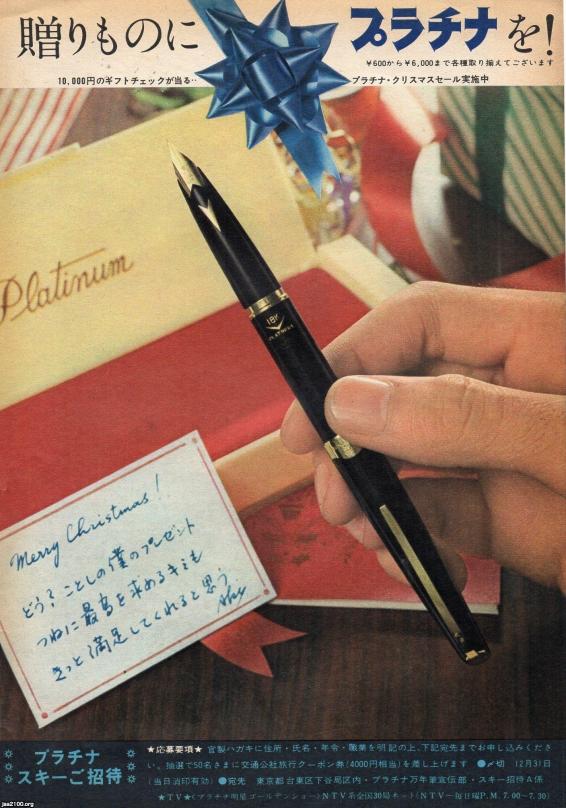 贈りものにプラチナを!
¥600から¥6,000まで各種取り揃えてございます
10,000円のギフトチェックが当る‥プラチナ・クリスマスセール実施中
Platinum
18K
PLATINUM
Merry Christmas!
どう? ことしの僕のプレゼント
つねに最高を求めるキミも
きっと満足してくれると思う
プラチナ
スキーご招待
★応募要項★ 官製ハガキに住所・氏名・年令・職業を明記の上、下記宛先までお申し込みくださ
い。抽選で50名さまに交通公社旅行クーポン券(4000円相当)を差し上げます ●〆切 12月3日
(当日消印有効) ●宛先 東京都台東区下谷局区内・プラチナ万年筆宣伝部・スキー招待A係
★TV★〈プラチナ明星ゴールデンショー〉NTV系全国30局ネット(NTV−毎日曜P.M.7.00〜7.30)
jaa2100.org